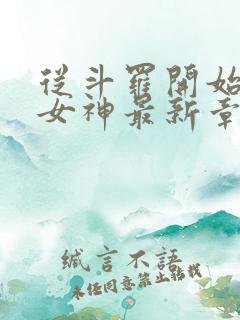 從斗羅開始
女神最新章
緘言不語
未任同意禁止轉載